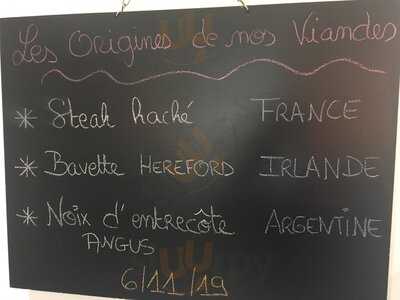 Les Origines de nos Viandes
* Steak haché FRANCE
* Bavette HEREFORD IRLANDE
* Noix d'entrecôte ARGENTINE
ANGUS
6/11/19